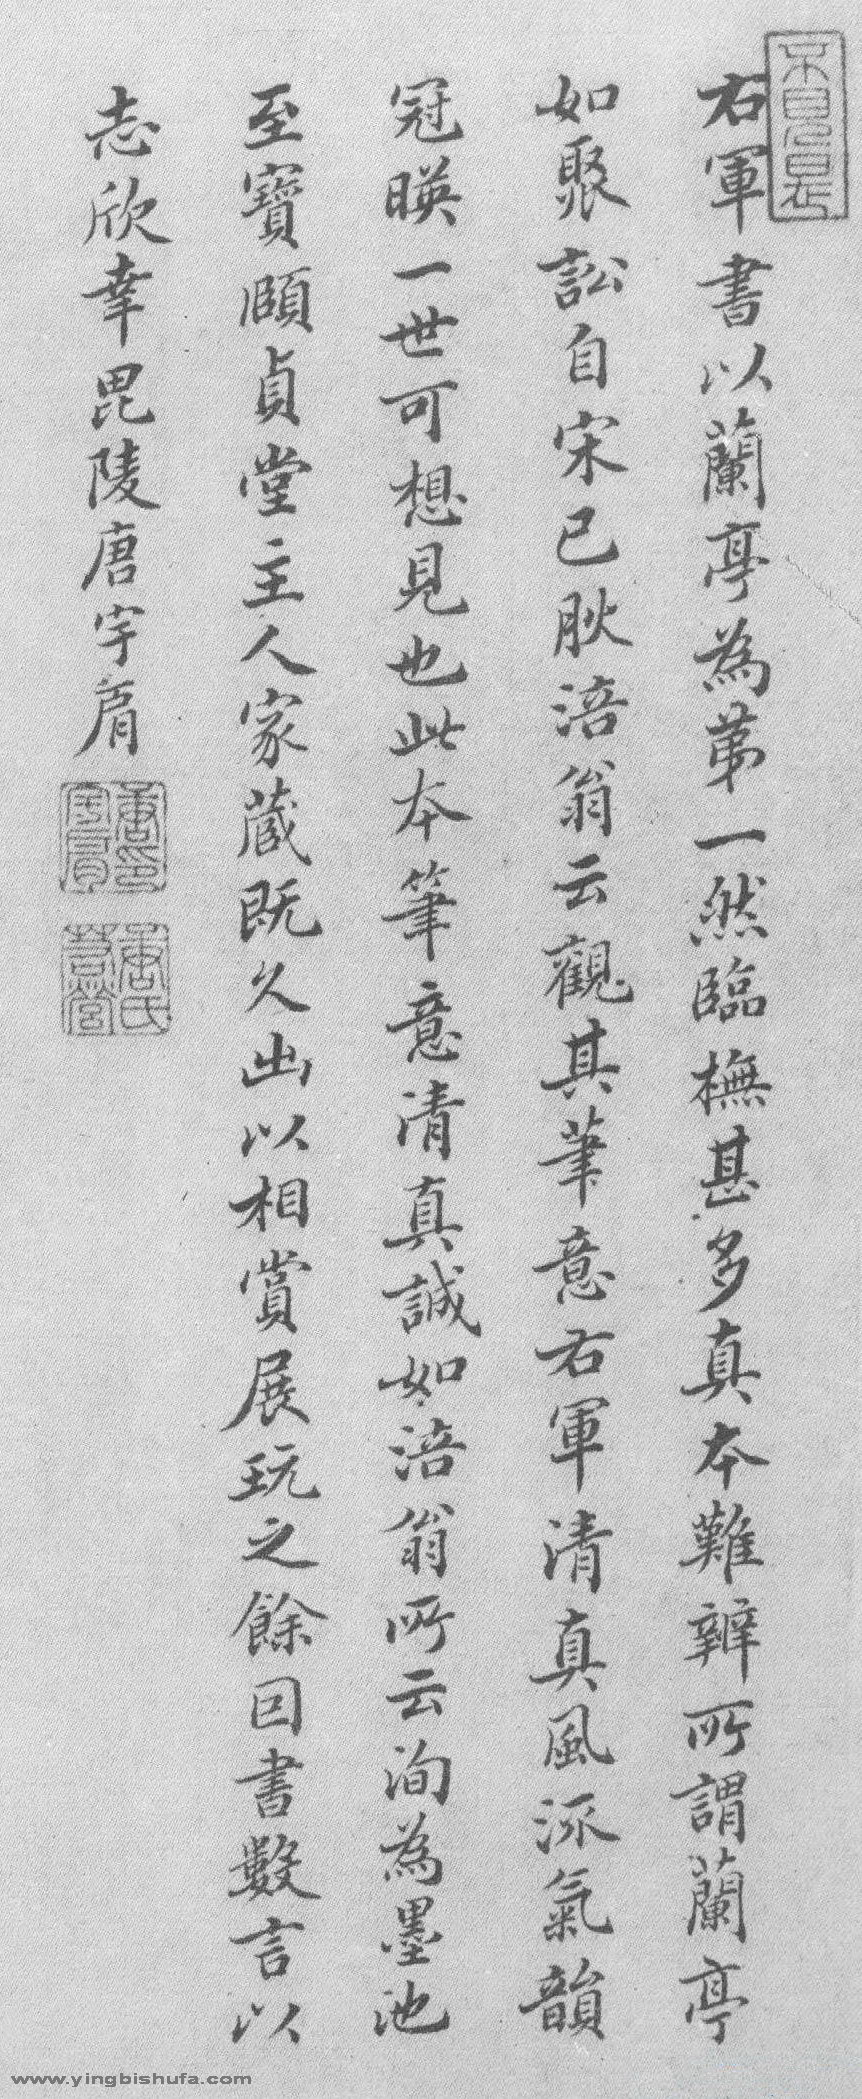 右軍書以蘭亭為第一然臨橅甚多真本難辨所謂蘭亭
如聚訟自宋已肰涪翁云觀其筆意右軍清真風流氣韻
冠暎一世可想見也此本筆意清真誠如涪翁所云洵為墨池
至寶頤貞堂主人家藏既久出以相賞展玩之餘回書數言以
志欣幸毘陵唐宇肩
唐印宇肩
唐氏
www.yingbishufa.com